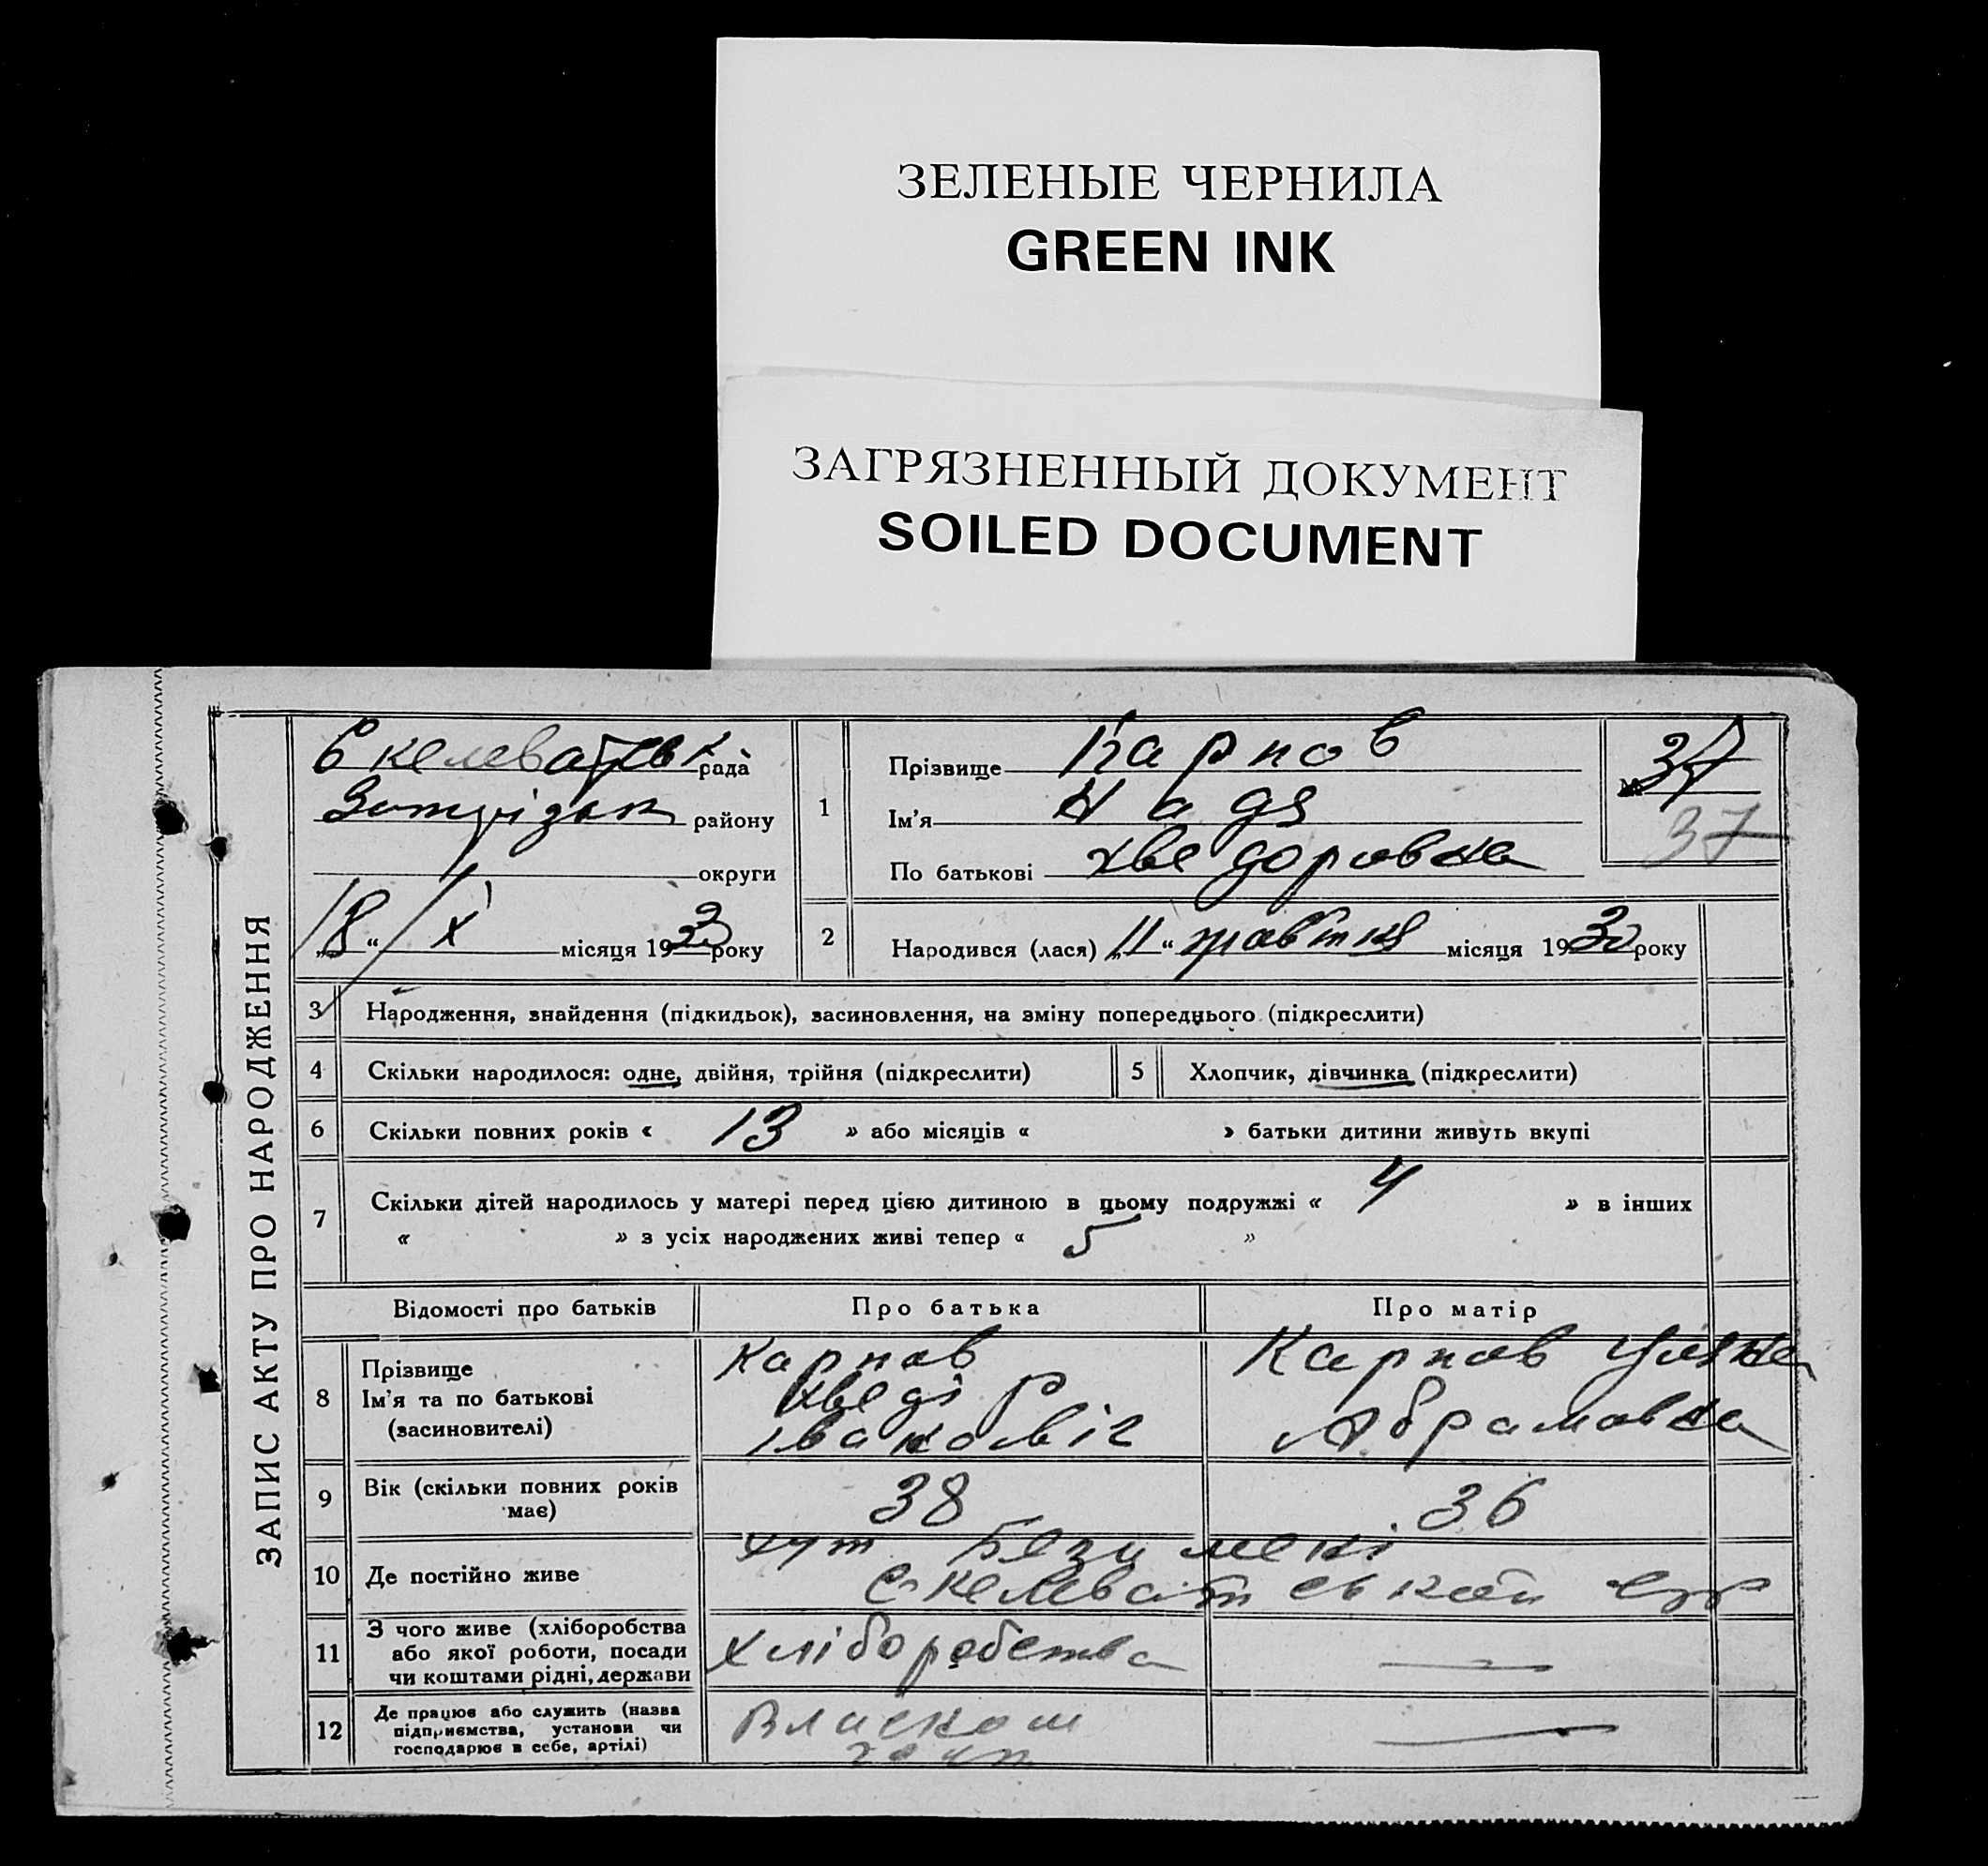 ЗЕЛЕНЫЕ ЧЕРНИЛА
GREEN INK
ЗАГРЯЗНЕННЫЙ ДОКУМЕНТ
SOILED DOCUMENT
ЗАПИС АКТУ ПРО НАРОДЖЕННЯ
рада
району
округи
„18“ X місяця 1930 року
1
Прізвище Карпов
Ім'я Надя
По батькові Хведоровна
№ 37
37
2
Народився (лася) „11“ травтня місяця 1930 року
3 Народження, знайдення (підкидьок), засиновлення, на зміну попереднього (підкреслити)
4 Скільки народилося: одне, двійня, трійня (підкреслити)
5 Хлопчик, дівчинка (підкреслити)
6 Скільки повних років « 13 » або місяців « » батьки дитини живуть вкупі
7 Скільки дітей народилось у матері перед цією дитиною в цьому подружжі « 4 » в інших
« » з усіх народжених живі тепер « 5 »
Відомості про батьків Про батька Про матір
8 Прізвище
Ім'я та по батькові
(засиновителі)
Карпов
Хведір
Іванович
Карпов Уляна
Абрамовна
9 Вік (скільки повних років
має)
38 36
10 Де постійно живе
хут
Скелеватської
11 З чого живе (хліборобства
або якої роботи, посади
чи коштами рідні, держави
хліборобства
12 Де працює або служить (назва
підприємства, установи чи
господарює в себе, артілі)